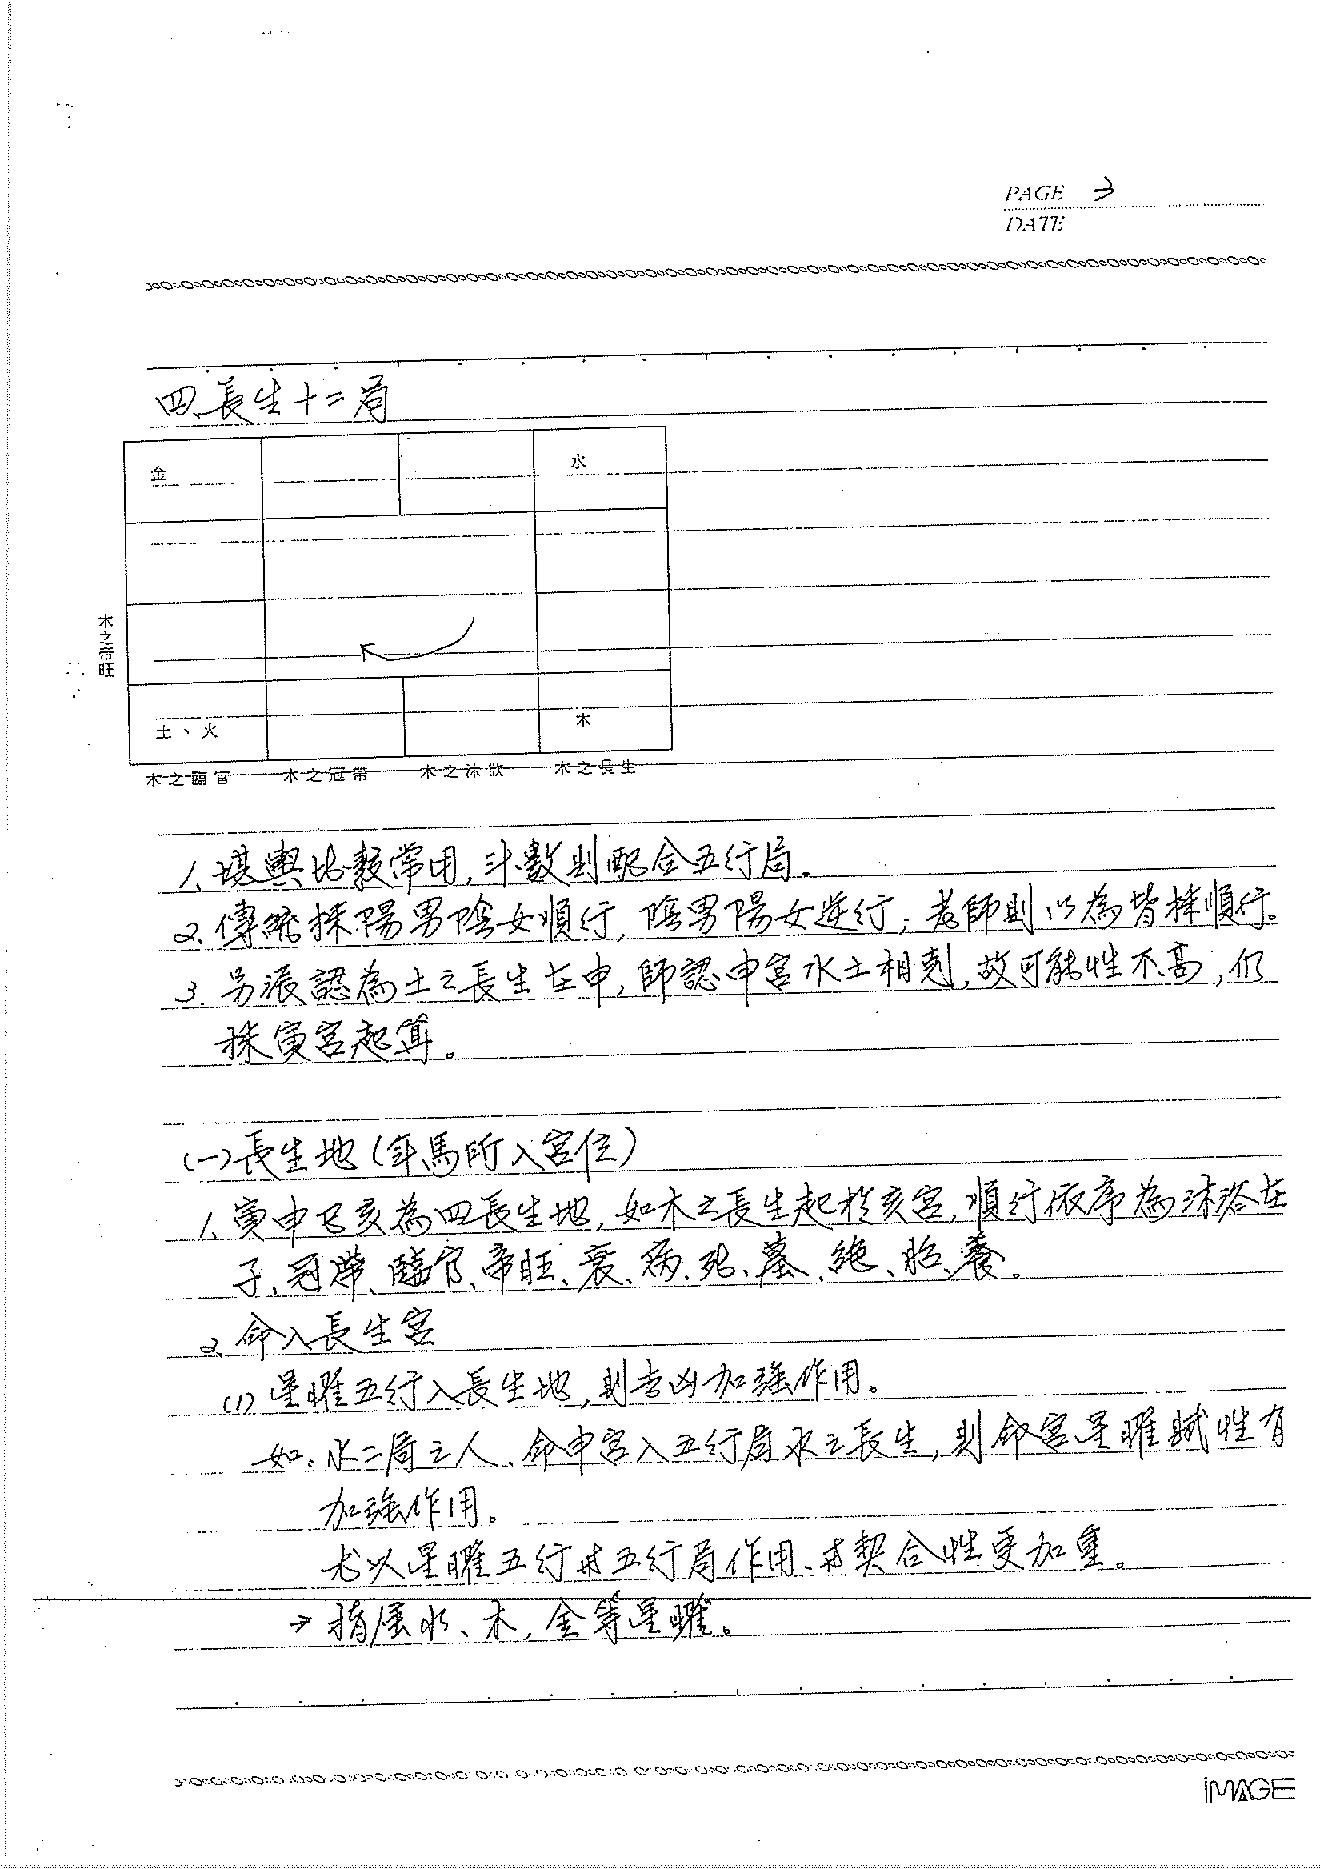 PAGE 3
DATE
四、長生十二局
金
水
木之帝旺
土、火
木
木之臨官 木之冠帶 木之沐欲 木之長生
1、堪輿比較常用，斗數則配合五行局。
2、傳統採陽男陰女順行，陰男陽女逆行；老師則以為皆採順行。
3、另派認為土之長生在申，師認申宮水土相剋，故可能性不高，仍
採寅宮起算。
(一)長生地(年馬所入宮位)
1、寅申巳亥為四長生地，如木之長生起於亥宮，順行依序為沐浴在
子、冠帶、臨官、帝旺、衰、病、死、墓、絕、胎、養。
2、命入長生宮
(1)星曜五行入長生地，則吉凶加強作用。
如：水二局之人、命申宮入五行局水之長生，則命宮星曜賦性有
加強作用。
尤以星曜五行 五行局作用、 契合性更加重。
→指屬水、木、金等星曜。
iMAGE